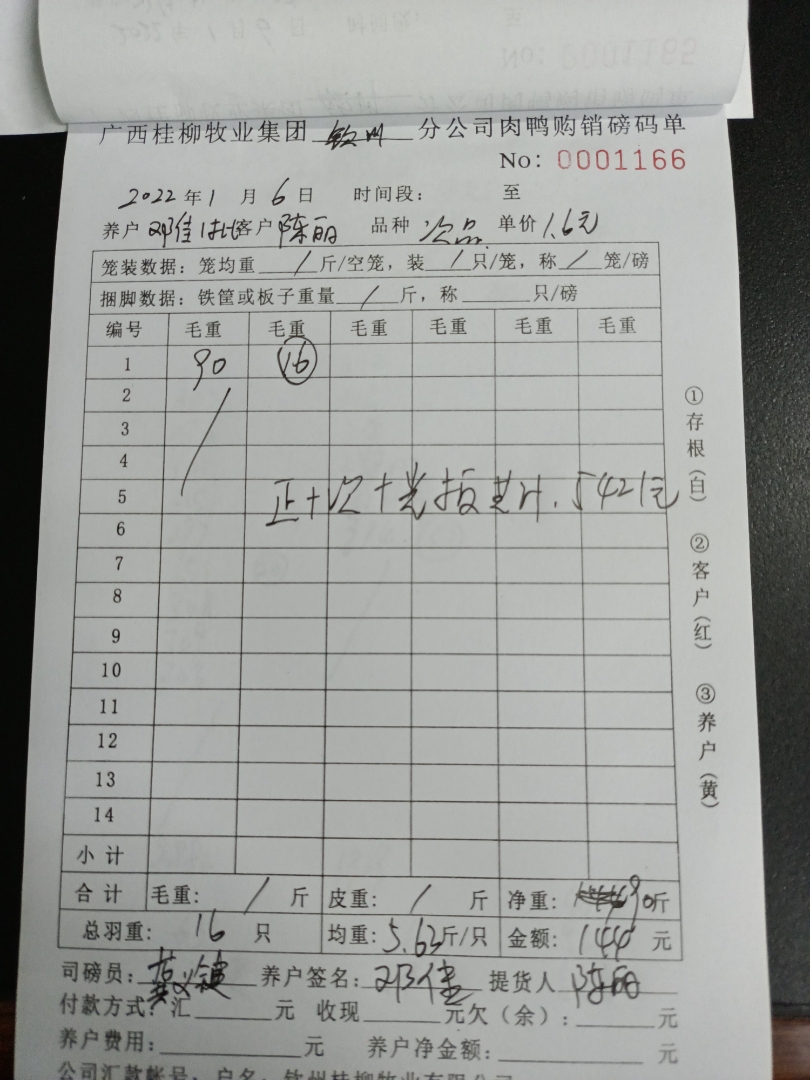 广西桂柳牧业集团 钦州 分公司肉鸭购销磅码单
No: 0001166
2022年1月6日 时间段: 至
养户 邓佳 客户 陈丽 品种 次品 单价 1.6元
笼装数据: 笼均重 / 斤/空笼, 装 / 只/笼, 称 / 笼/磅
捆脚数据: 铁筐或板子重量 / 斤, 称 只/磅
编号 毛重 毛重 毛重 毛重 毛重 毛重
1 90 16
2
3
4
5
正+次+光板共计. 5421元
6
7
8
9
10
11
12
13
14
小计
合计 毛重: / 斤 皮重: / 斤 净重: 90斤
总羽重: 16 只 均重: 5.63斤/只 金额: 144 元
司磅员: 养户签名: 邓佳 提货人 陈丽
付款方式: 汇 元 收现 元欠(余): 元
养户费用: 元 养户净金额: 元
公司汇款帐号: 户名: 钦州桂柳牧业有限公司
①存根(白) ②客户(红) ③养户(黄)